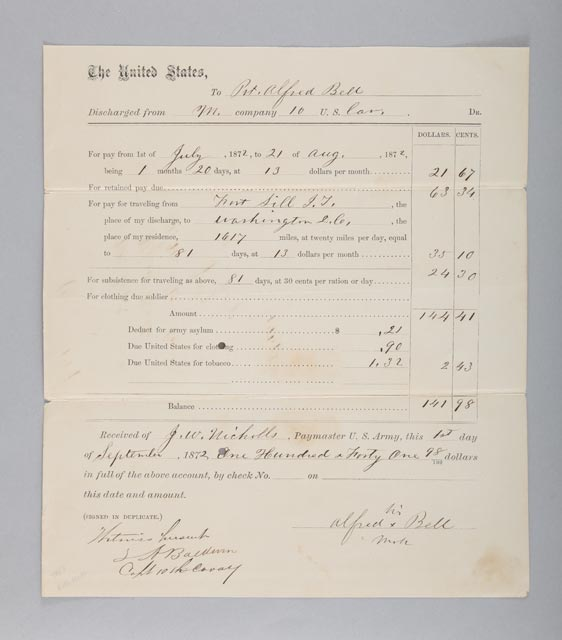 The United States,
To Pvt. Alfred Bell
Discharged from M. company 10 U. S. Cav. Dr.
DOLLARS. CENTS.
For pay from 1st of July, 1872, to 21 of Aug., 1872,
being 1 months 20 days, at 13 dollars per month 21 67
For retained pay due 63 34
For pay for traveling from Fort Sill I.T., the
place of my discharge, to Washington D.C., the
place of my residence, 1617 miles, at twenty miles per day, equal
to 81 days, at 13 dollars per month 35 10
For subsistence for traveling as above, 81 days, at 30 cents per ration or day 24 30
For clothing due soldier
Amount 144 41
Deduct for army asylum $ .21
Due United States for clothing .90
Due United States for tobacco 1.32 2 43
Balance 141 98
Received of J. W. Nicholls, Paymaster U. S. Army, this 1st day
of September, 1872, One Hundred & Forty One 98/100 dollars
in full of the above account, by check No. on
this date and amount.
(SIGNED IN DUPLICATE.)
his
Alfred x Bell
mark
Witness
Baldwin
Capt 10th Cavaly